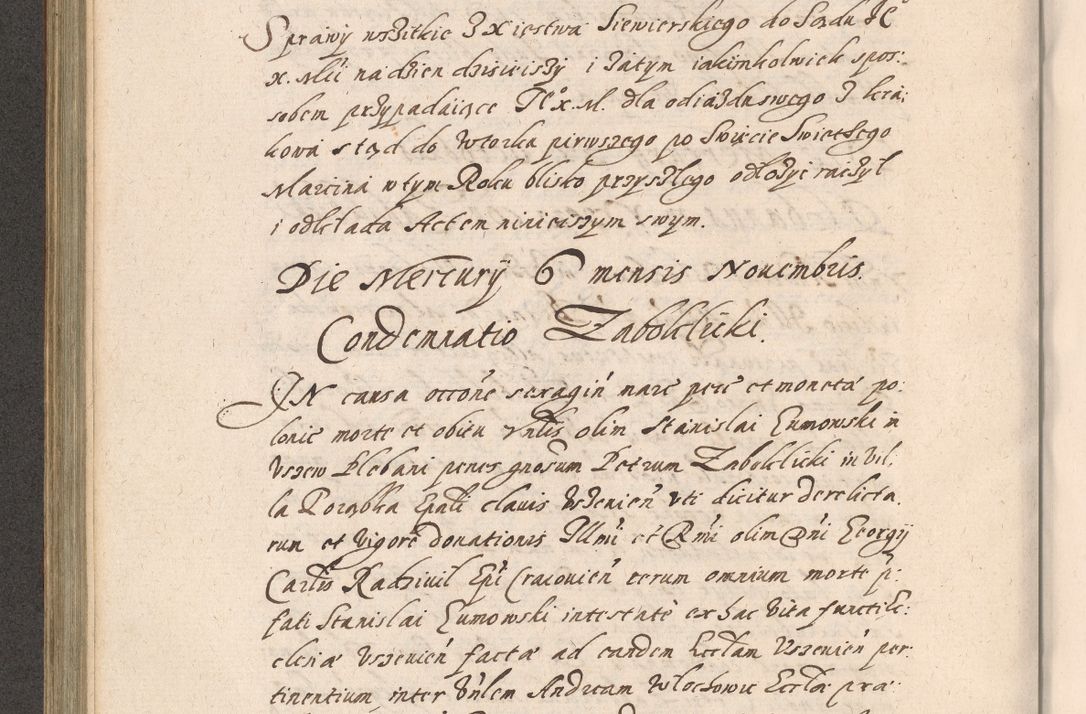 Sprawy wszitkie Z Xięstwa Siewierskiego do Sądu Je°
x. Mći na dzien dzisieiszÿ i zatym iakimkolwiek spos:
sobem przÿpadaiące Je° x. M. dla odiazdu swego Z kra;
kowa stąd do Wtorku pirwszego po Swięcie Swiethego
Marcina w tym Roku blisko przyszłego odłożyć raczÿł
i odkłada Actem ninieiszym swym.
Die Mercurÿ 6 mensis Nouembris.
Condemnatio Zaboklicki.
IN causa occōne seragiń narē pecē et monetæ po:
loniē morte et obitu Vnłis olim Stanislai Zumowski in
Vszew Plebani penes gnosum Petrum Zaboklicki in vil:
la Porąbka Epałi clauis Vszenień vti dicitur derelicta.
rum et vigore donationis Illmi et Rmi olim Dni Georgij
Carłis Radziuil Epi Cracouień rerum omnium morte p̄:
fati Stanislai Zumowski intestatē ex hac vita functi Ec:
clesiæ Vszenień factæ ad eandem Eccłam Vszenień per:
tinentium inter Vnlem Andream Włochowic Eccłæ præ: